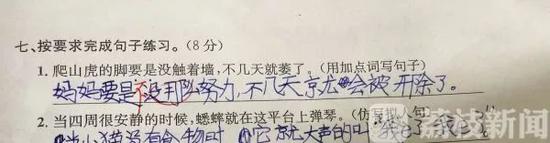 七、按要求完成句子练习。(8分)
1. 爬山虎的脚要是没触着墙,不几天就萎了。(用加点词写句子)
妈妈要是没那么努力,不几天京龙会被开除了。
2. 当四周很安静的时候,蟋蟀就在这平台上弹琴。(仿写句)
当小猫没有食物时,它就大声的叫
荔枝新闻